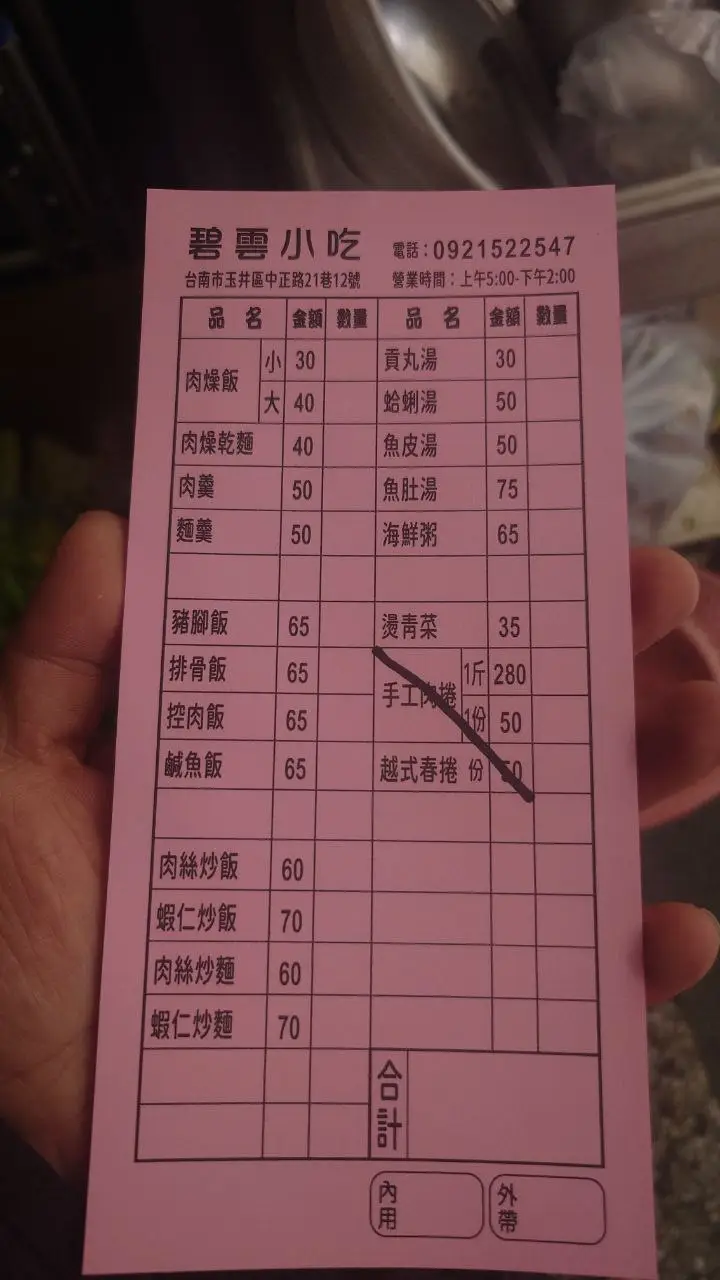 碧雲小吃 電話：0921522547
台南市玉井區中正路21巷12號 營業時間：上午5:00-下午2:00
品名 金額 數量 品名 金額 數量
肉燥飯 小 30 貢丸湯 30
大 40 蛤蜊湯 50
肉燥乾麵 40 魚皮湯 50
肉羹 50 魚肚湯 75
麵羹 50 海鮮粥 65
豬腳飯 65 燙青菜 35
排骨飯 65 手工肉捲 1斤 280
控肉飯 65 1份 50
鹹魚飯 65 越式春捲 份 50
肉絲炒飯 60
蝦仁炒飯 70
肉絲炒麵 60
蝦仁炒麵 70
合計
內用 外帶